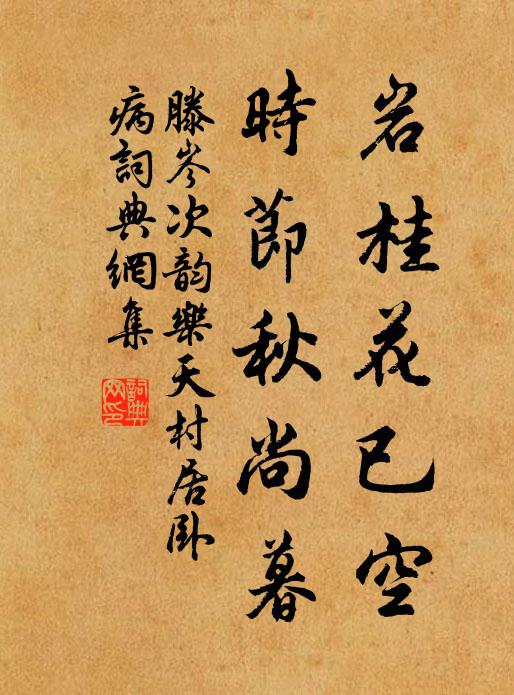 岩桂花已空
時節秋尚暮
滕岑次韵樂天村居卧
病詞典網集
詞典
网印